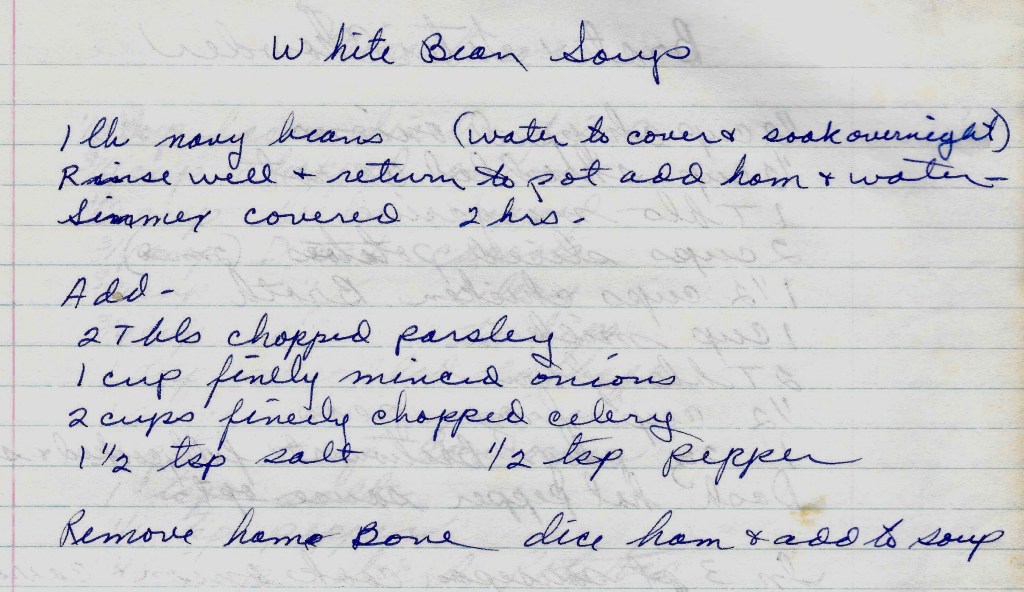 White Bean Soup
1 lb navy beans (water to cover & soak overnight)
Rinse well + return to pot add ham + water -
Simmer covered 2 hrs -
Add -
2 Tbls chopped parsley
1 cup finely minced onions
2 cups finely chopped celery
1 1/2 tsp salt 1/2 tsp Pepper
Remove ham Bone dice ham & add to soup